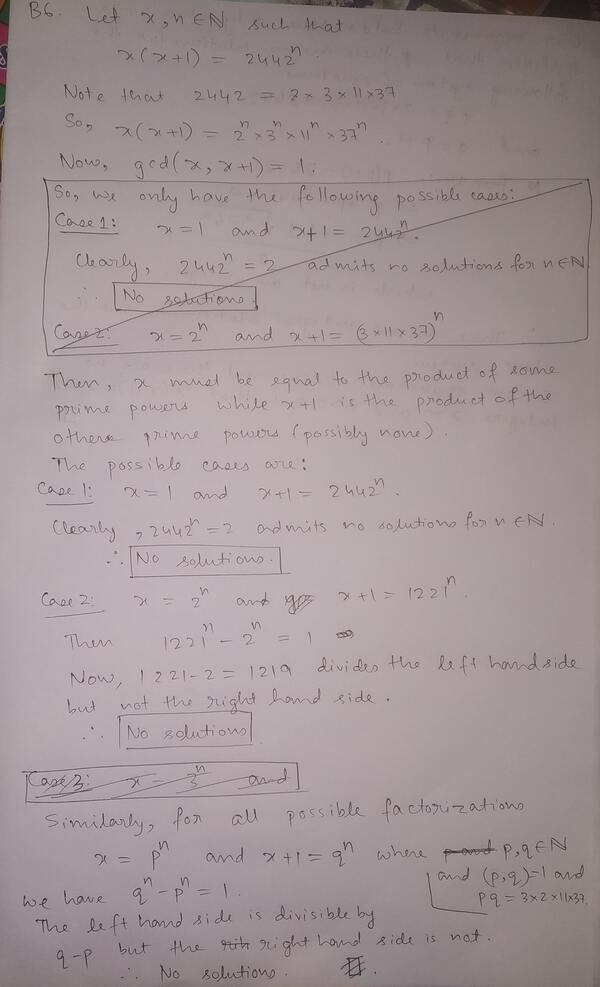 B6. Let x, n ∈ N such that
x(x+1) = 2442ⁿ.
Note that 2442 = 2 × 3 × 11 × 37
So, x(x+1) = 2ⁿ × 3ⁿ × 11ⁿ × 37ⁿ.
Now, gcd(x, x+1) = 1.
So, we only have the following possible cases:
Case 1: x = 1 and x+1 = 2442ⁿ.
Clearly, 2442ⁿ = 2 admits no solutions for n ∈ N
∴ No solutions.
Case 2: x = 2ⁿ and x+1 = (3×11×37)ⁿ
Then, x must be equal to the product of some
prime powers while x+1 is the product of the
others prime powers (possibly none).
The possible cases are:
Case 1: x = 1 and x+1 = 2442ⁿ.
Clearly, 2442ⁿ = 2 admits no solutions for n ∈ N.
∴ No solutions.
Case 2: x = 2ⁿ and x+1 = 1221ⁿ.
Then 1221ⁿ - 2ⁿ = 1
Now, 1221-2 = 1219 divides the left hand side
but not the right hand side.
∴ No solutions
Case 3: x = 3ⁿ and
Similarly, for all possible factorizations
x = pⁿ and x+1 = qⁿ where p and p, q ∈ N
and (p,q)=1 and
pq = 3×2×11×37.
we have qⁿ - pⁿ = 1.
The left hand side is divisible by
q-p but the right hand side is not.
∴ No solutions.